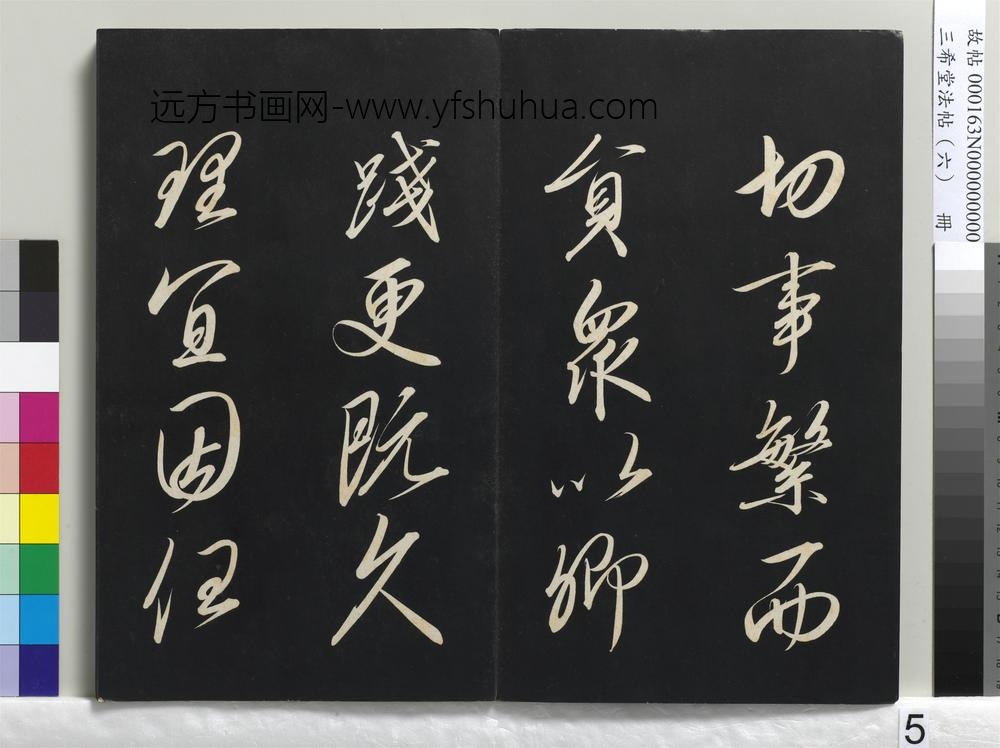 远方书画网-www.yfshuhua.com
切事繁而
貟衆以卿
踐更既久
理宜因任
故帖 000163N000000000
三希堂法帖（六） 冊
5